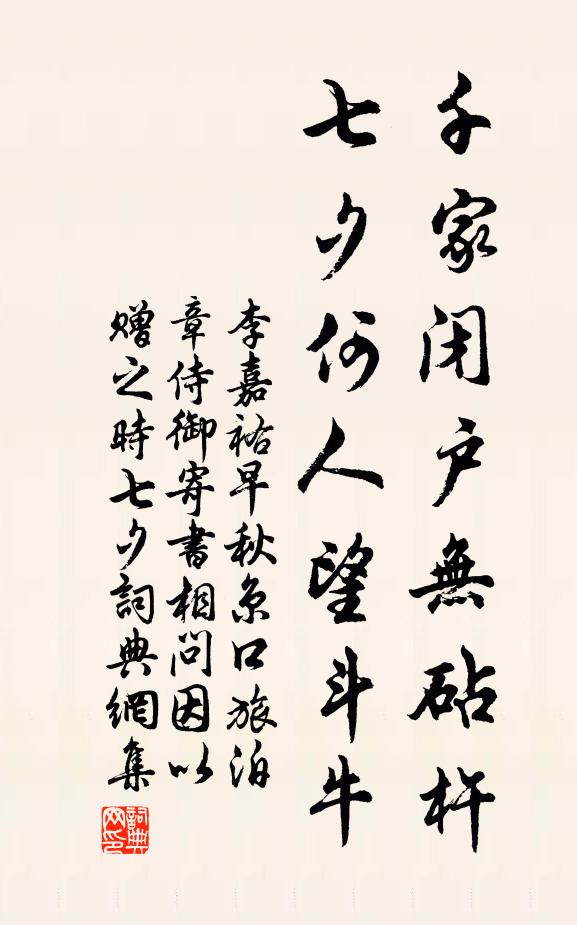 千家闭户無砧杵
七夕何人望斗牛
李嘉祐早秋京口旅泊
章侍御寄書相問因以
赠之時七夕詞典網集
詞典网印